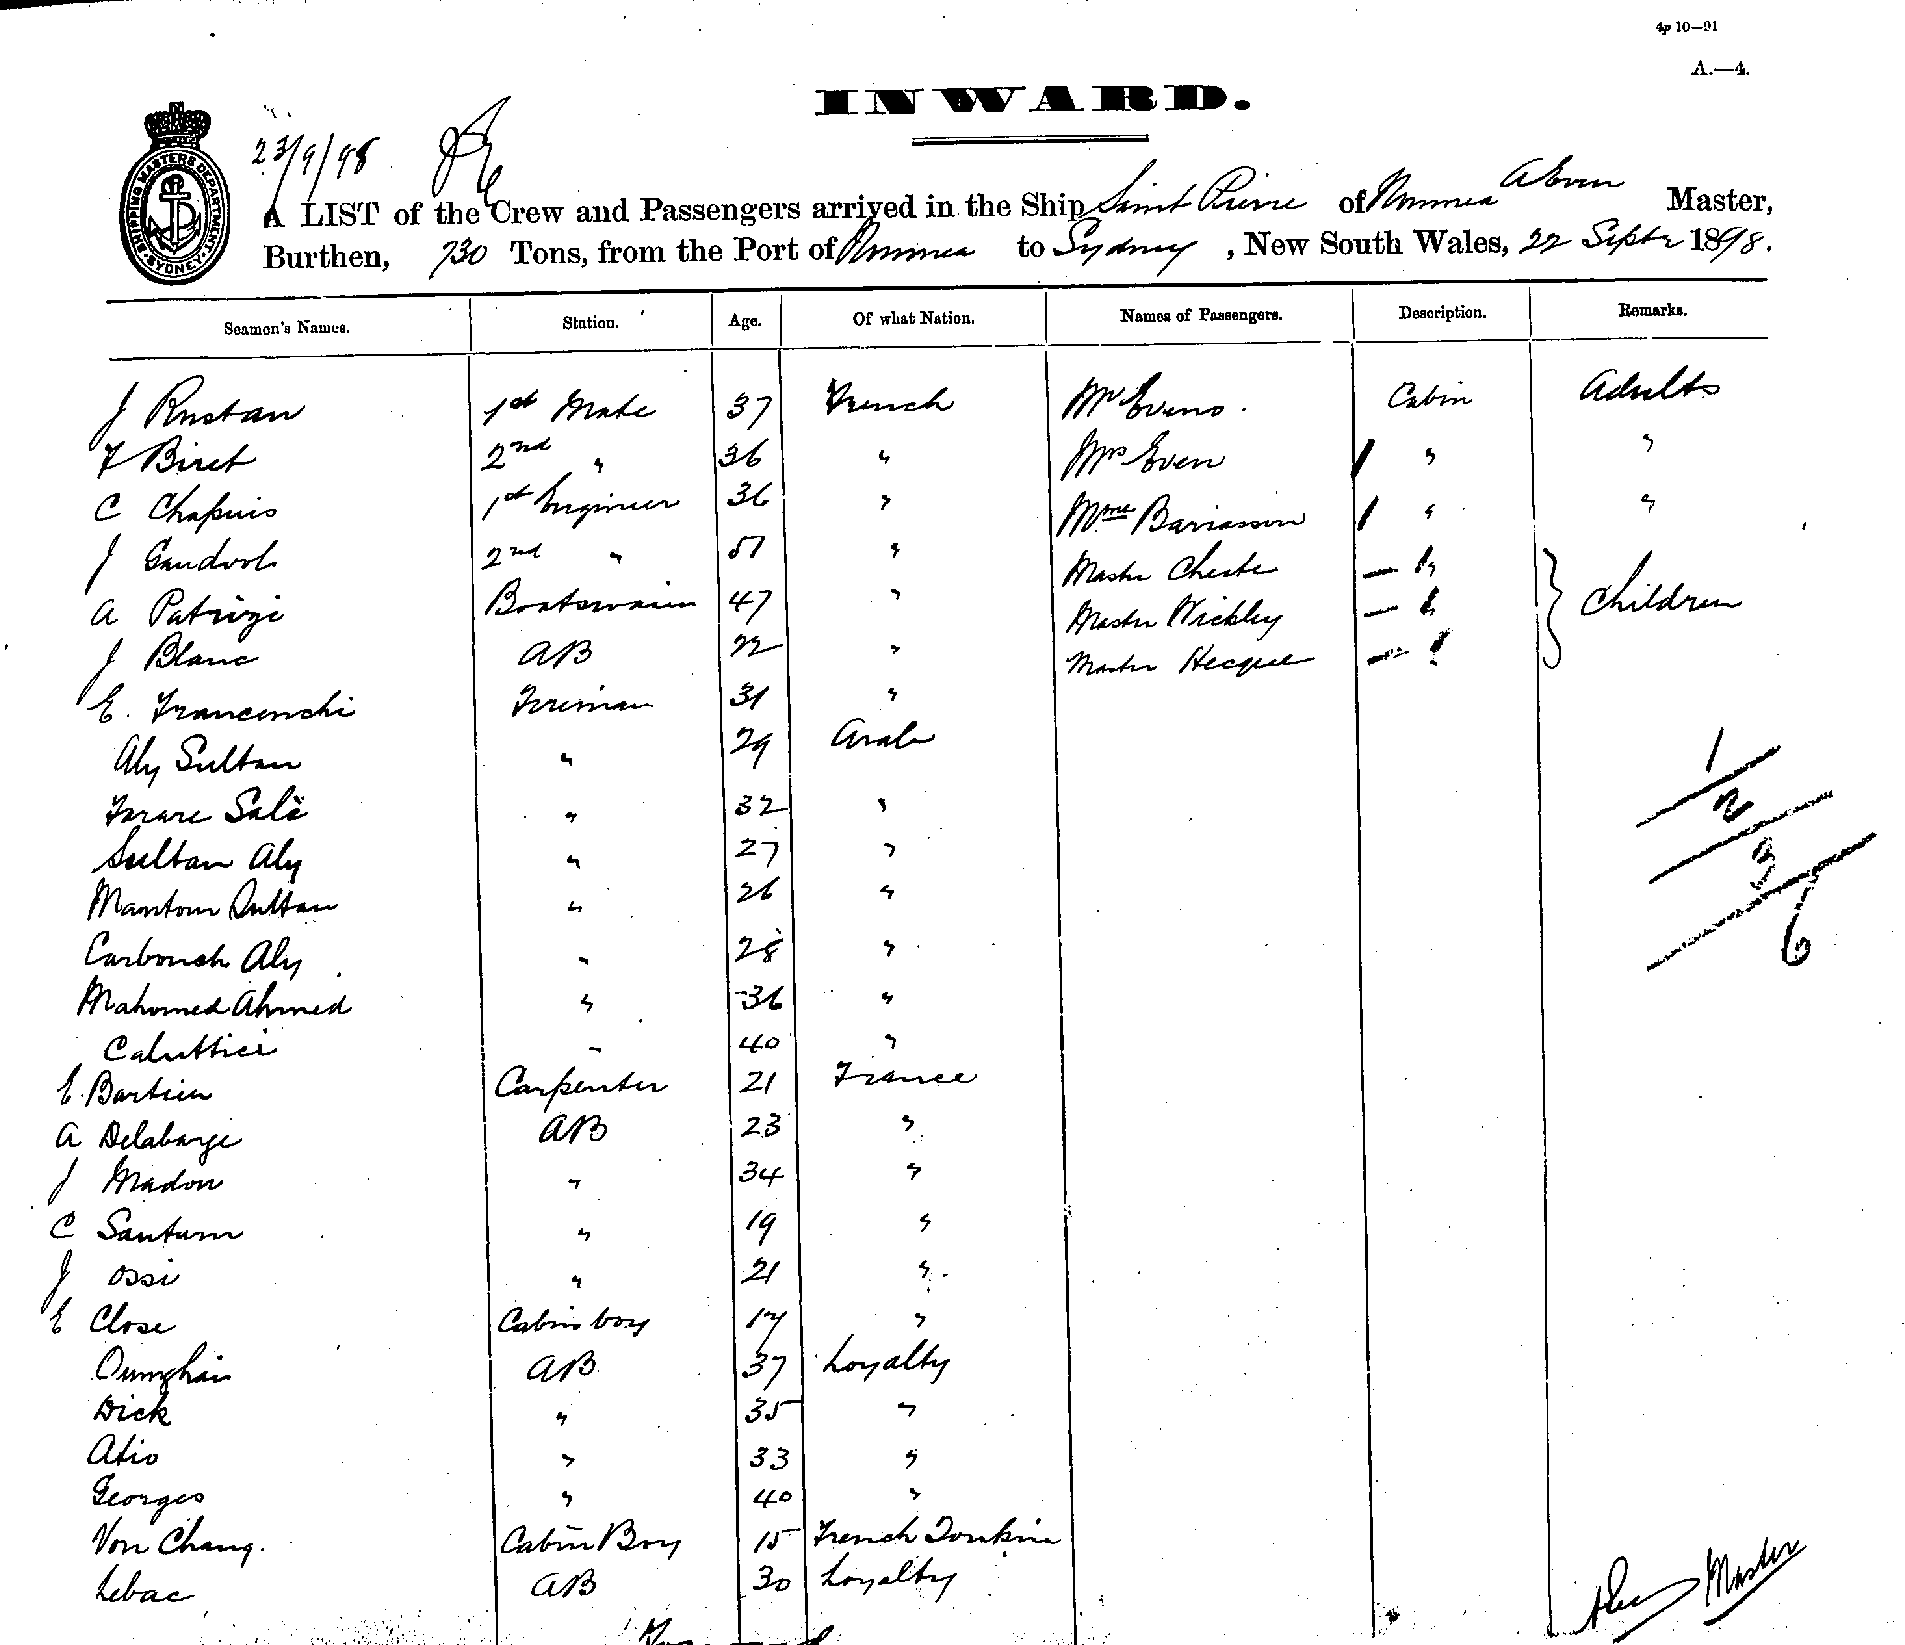 4p 10—91
A.—4.
INWARD.
SHIPPING MASTERS DEPARTMENT SYDNEY
23/9/98
A LIST of the Crew and Passengers arrived in the Ship Saint Pierre of Noumea A Even Master,
Burthen, 730 Tons, from the Port of Noumea to Sydney, New South Wales, 22 Septr 1898.
Seamen's Names. Station. Age. Of what Nation. Names of Passengers. Description. Remarks.
J Rustan 1st Mate 37 French Mr Evens. Cabin Adults
F Biret 2nd " 36 " Mrs Even " "
C Chapuis 1st Engineer 36 " Mme " "
J 2nd " 51 " Master Cheste — "
A Patrizi Boatswain 47 " Master Wickley — " Children
J Blanc AB 22 " Master Hecquet — "
E. Francenchi Fireman 31 "
Aly Sultan " 29 Arab
Farare Salé " 32 "
Sultan Aly " 27 "
Mantour Sultan " 26 "
Carbouch Aly " 28 "
Mahomed Ahmed " 36 "
" 40 "
E. Bartien Carpenter 21 France
A Delabarge AB 23 "
J Madon " 34 "
C " 19 "
J Ossi " 21 "
E Close Cabin boy 17 "
AB 37 Loyalty
Dick " 35 "
Atio " 33 "
Georges " 40 "
Von Chang. Cabin Boy 15 French Tonkin
Lebac AB 30 Loyalty
1
2
3
6
Master